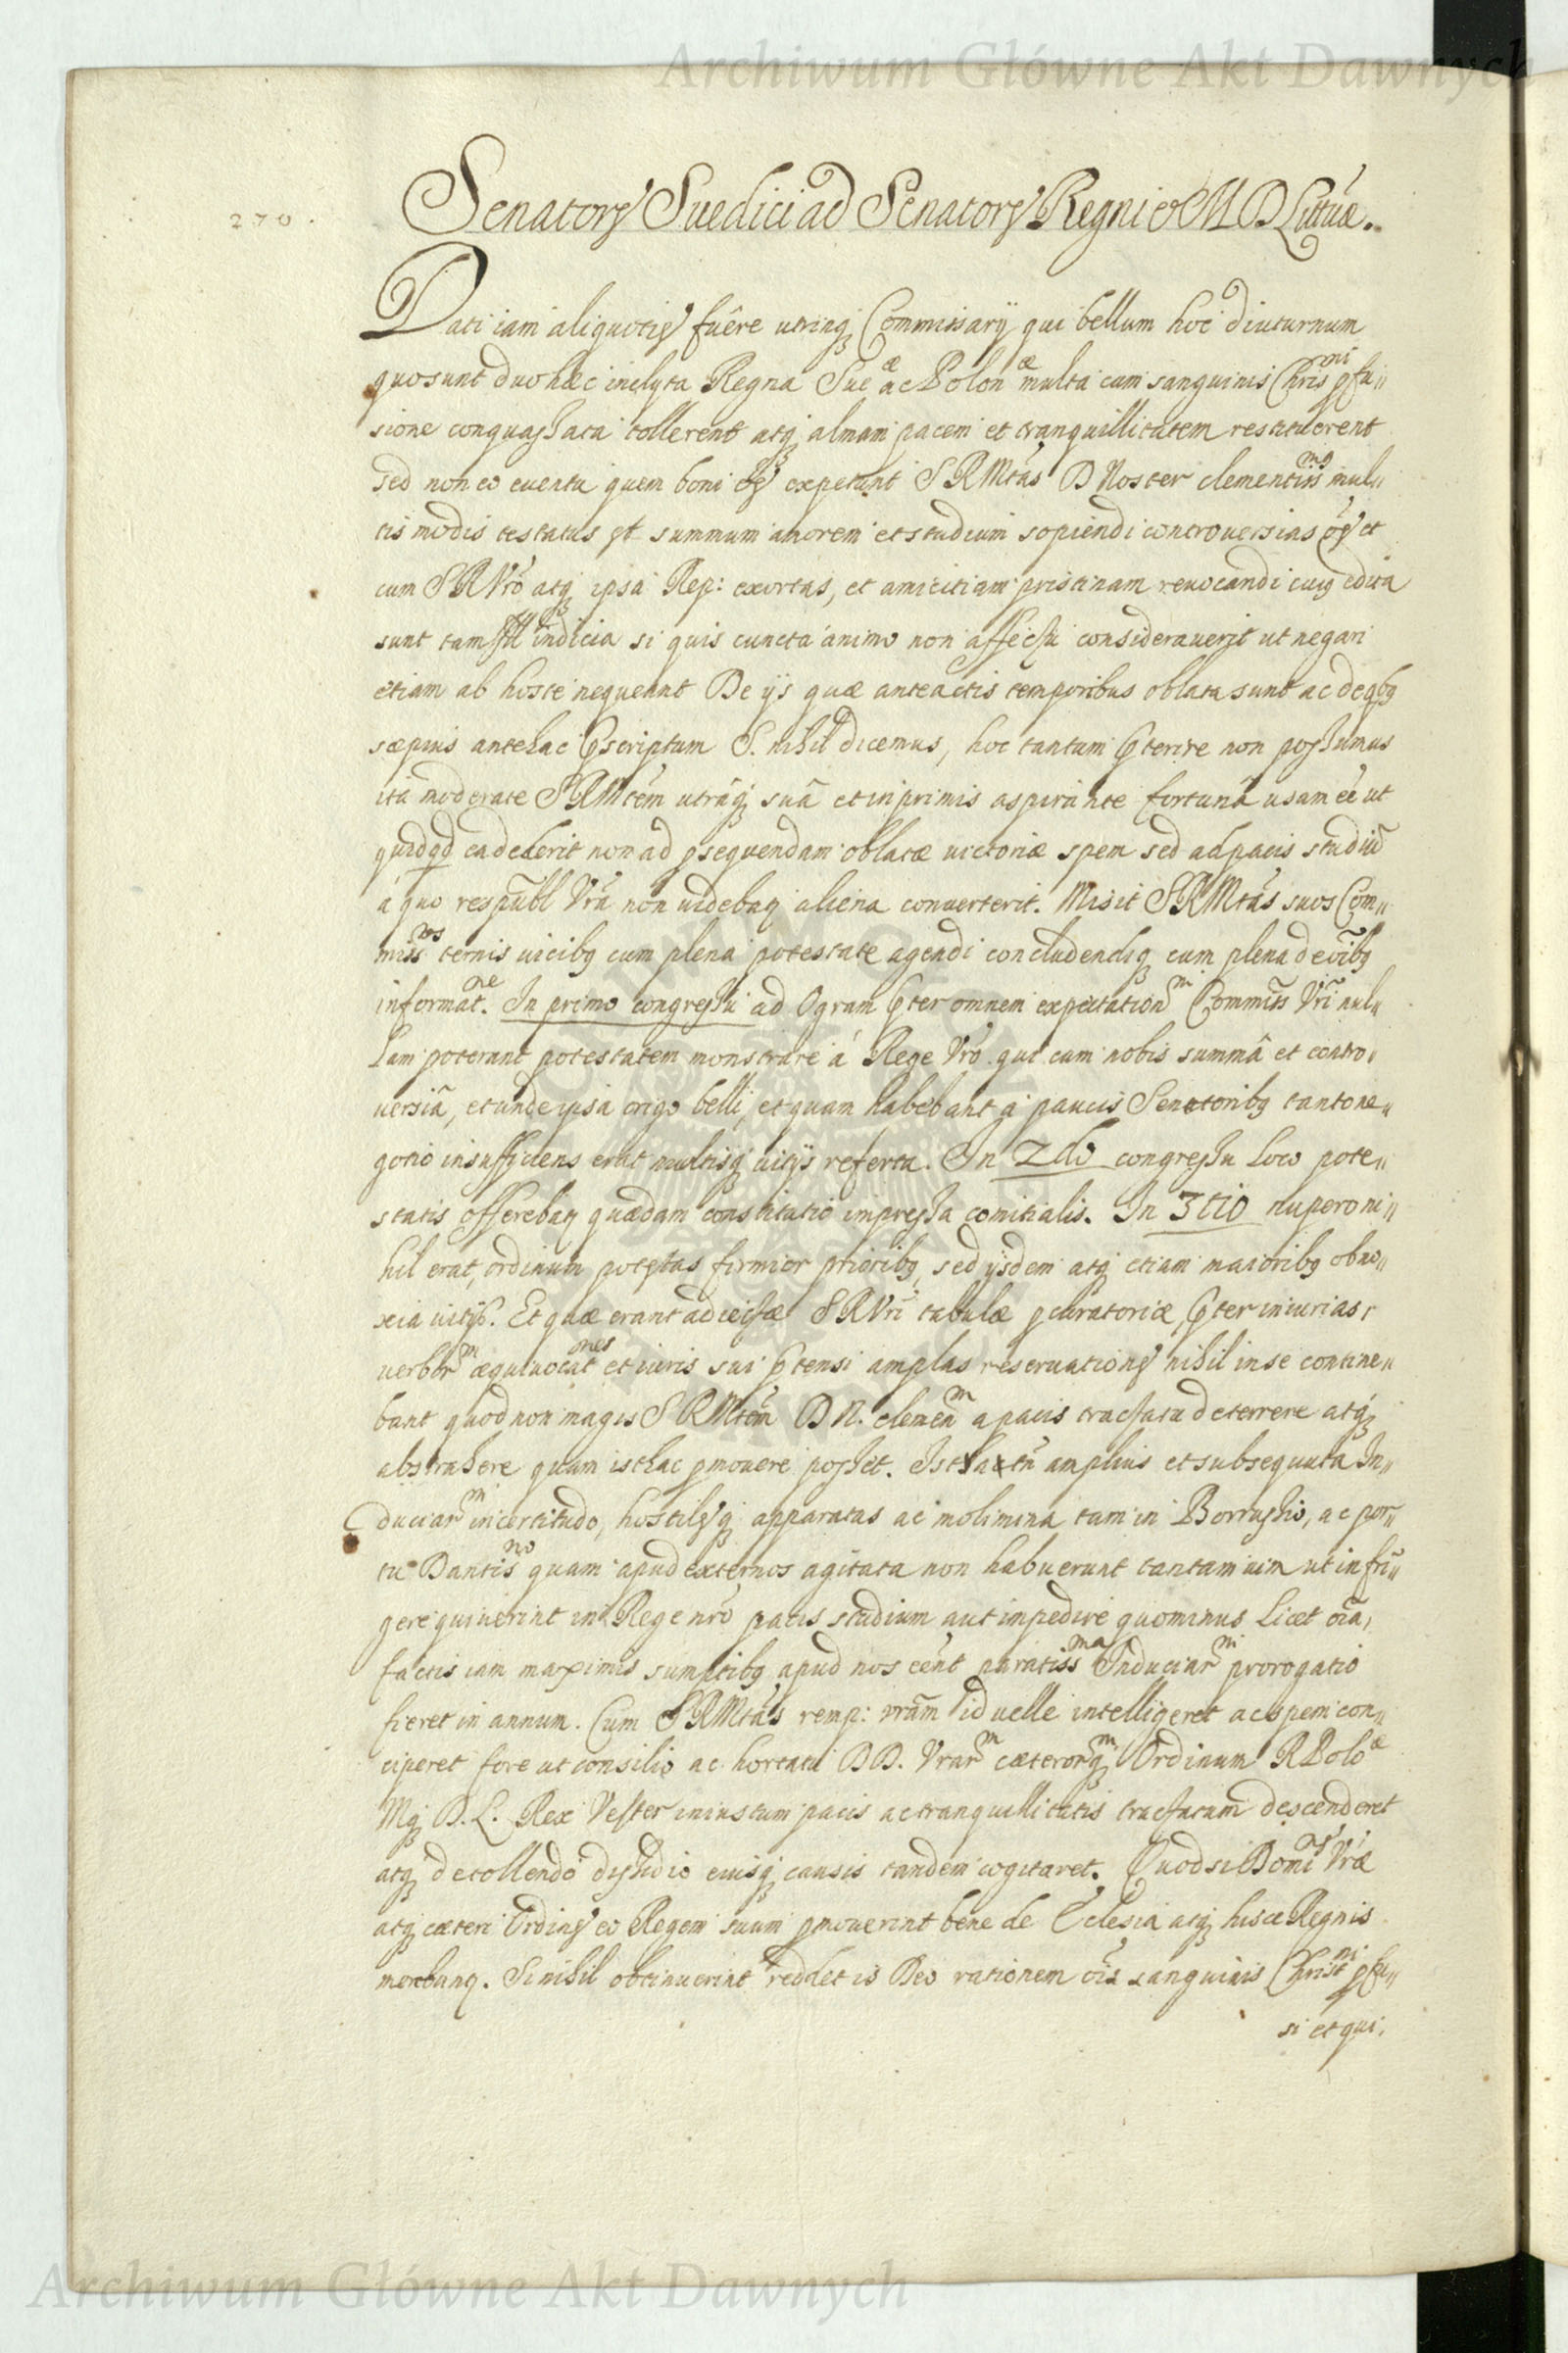 Archiwum Główne Akt Dawnych
270.
Senatores Suedici ad Senatores Regni & M D Lituae.
Dati iam aliquoties fuêre utrinq Commissarÿ qui bellum hoc diuturnum
quo sunt duo haec inclyta Regna Sueae ac Polonae multa cum sanguinis Chrisni pfu„
sione conquassata tollerent atq almam pacem et tranquillitatem restituerent
sed non eo eventu quem boni oēs expetunt S R Mtas D Noster clementissmo mul„
tis modis testatus est summum amorem et studium sopiendi controversias oēs et
cum S R Vro atq ipsa Rep: exortas, et amicitiam pristinam revocandi cuiq edita
sunt tam indicia si quis cuncta animo non affectu consideraverit ut negari
etiam ab hoste nequeant De ijs quae anteactis temporibus oblata sunt ac de qbq
saepius antehac pscriptum S. nihil dicemus, hoc tantum pterire non possumus
ita moderate SRMtem utrâq suâ et inprimis aspirante fortunâ usam eē ut
quidqd ea dederit non ad psequendam oblatae victoriae spem sed ad pacis studiū
á quo respubl Vrā non videbaq aliena converterit. Misit SRMtas suos Com„
missros ternis vicibq cum plena potestate agendi concludendiq cum plena de oībq
informatne. In primo congressu ad Ogram pter omnem expectationm Commiss Vri nul„
lam poterant potestatem monstrare á Rege Vro qui cum nobis summâ et contro„
versiâ, et unde ipsa origo belli, et quam habebant a paucis Senatoribq tanto ne„
gotio insufficiens erat multisq vitijs referta. In 2do congressu loco pote„
statis offerebaq quaedam constitutio impressa comitialis. In 3tio nupero ni„
hil erat, ordinum potestas firmior prioribq, sed ijsdem atq etiam maioribq obno„
xia vitijs. Et quae erant adiectae S R Vri tabulae pcuratoriae, pter iniurias,
verborm aequivocatnes et iuris sui ptensi amplas reservationes nihil in se contine„
bant quod non magis S RMtem D N. clemenm a pacis tractatu deterrere atq
abstrahere quam isthac pmovere posset. Isthaec tn amplius et subsequuta In„
duciarm incertitudo, hostilesq apparatas ac molimina tam in Borussio, ac por„
tu Dantisno quam apud externos agitata non habuerunt tantam vim ut infri„
gere quiverint in Rege nrō pacis studium aut impedire quominus licet oīa,
factis iam maximis sumptibq apud nos eēnt paratissma Induciarm prorogatio
fieret in annum. Cum SRMtas remp: vrām id velle intelligeret ac spem con„
ciperet fore ut consilio ac hortatu DD. Vrarm caeterorqm Ordinum R Poloae
Mq D. L. Rex Vester in iustum pacis ac tranquillitatis tractatum descenderet
atq de tollendo dissidio eiusq causis tandem cogitaret. Quod si Domines Vrae
atq caeteri Ordines eo Regem suum pmoverint bene de Eclesia atq hisce Regnis
merebunq. Si nihil obtinuerint reddet is Deo rationem oīs sanguinis Christni pfu„
si et qui,
Archiwum Główne Akt Dawnych